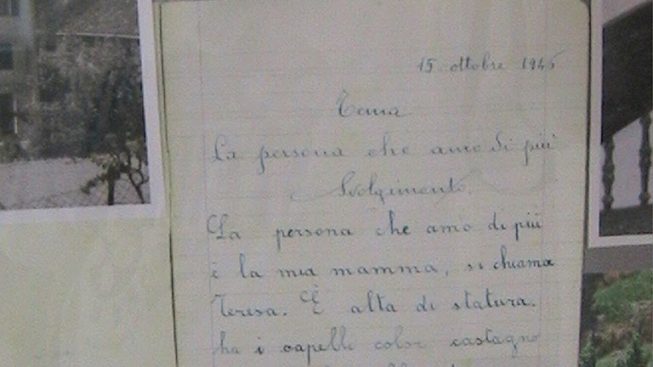 15 ottobre 1945
Tema
La persona che amo di più
Svolgimento
La persona che amo di più
è la mia mamma, si chiama
Teresa. È alta di statura.
ha i capelli color castagno